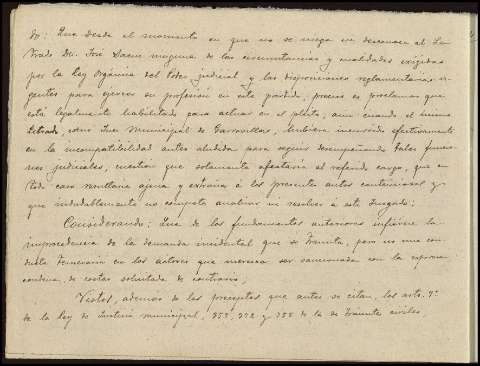 do: Que desde el momento en que no se niega ni desconoce al Le-
trado Dn. José Daen ninguna de las circunstancias y cualidades exigidas
por la Ley Orgánica del Poder judicial y las disposiciones reglamentarias vi-
gentes para ejercer su profesión en este partido, preciso es proclamar que
está legalmente habilitado para actuar en el pleito, aun cuando el mismo
Letrado, como Juez Municipal de Garrovillas, hubiera incurrido efectivamente
en la incompatibilidad antes aludida para seguir desempeñando tales funcio-
nes judiciales, cuestión que solamente afectaría al referido cargo, que en
todo caso resultaría ajena y extraña á los presentes autos contenciosos y
que indudablemente no compete analizar ni resolver á este Juzgado;
Considerando: Que de los fundamentos anteriores infiérese la
improcedencia de la demanda incidental que se tramita, pero no una con-
ducta temeraria en los actores que merezca ser sancionada con la expresa
condena de costas solicitada de contrario,
Vistos, además de los preceptos que antes se citan, los arts. 7º
de la ley de Justicia municipal, 359, 372 y 755 de la de Trámites civiles.